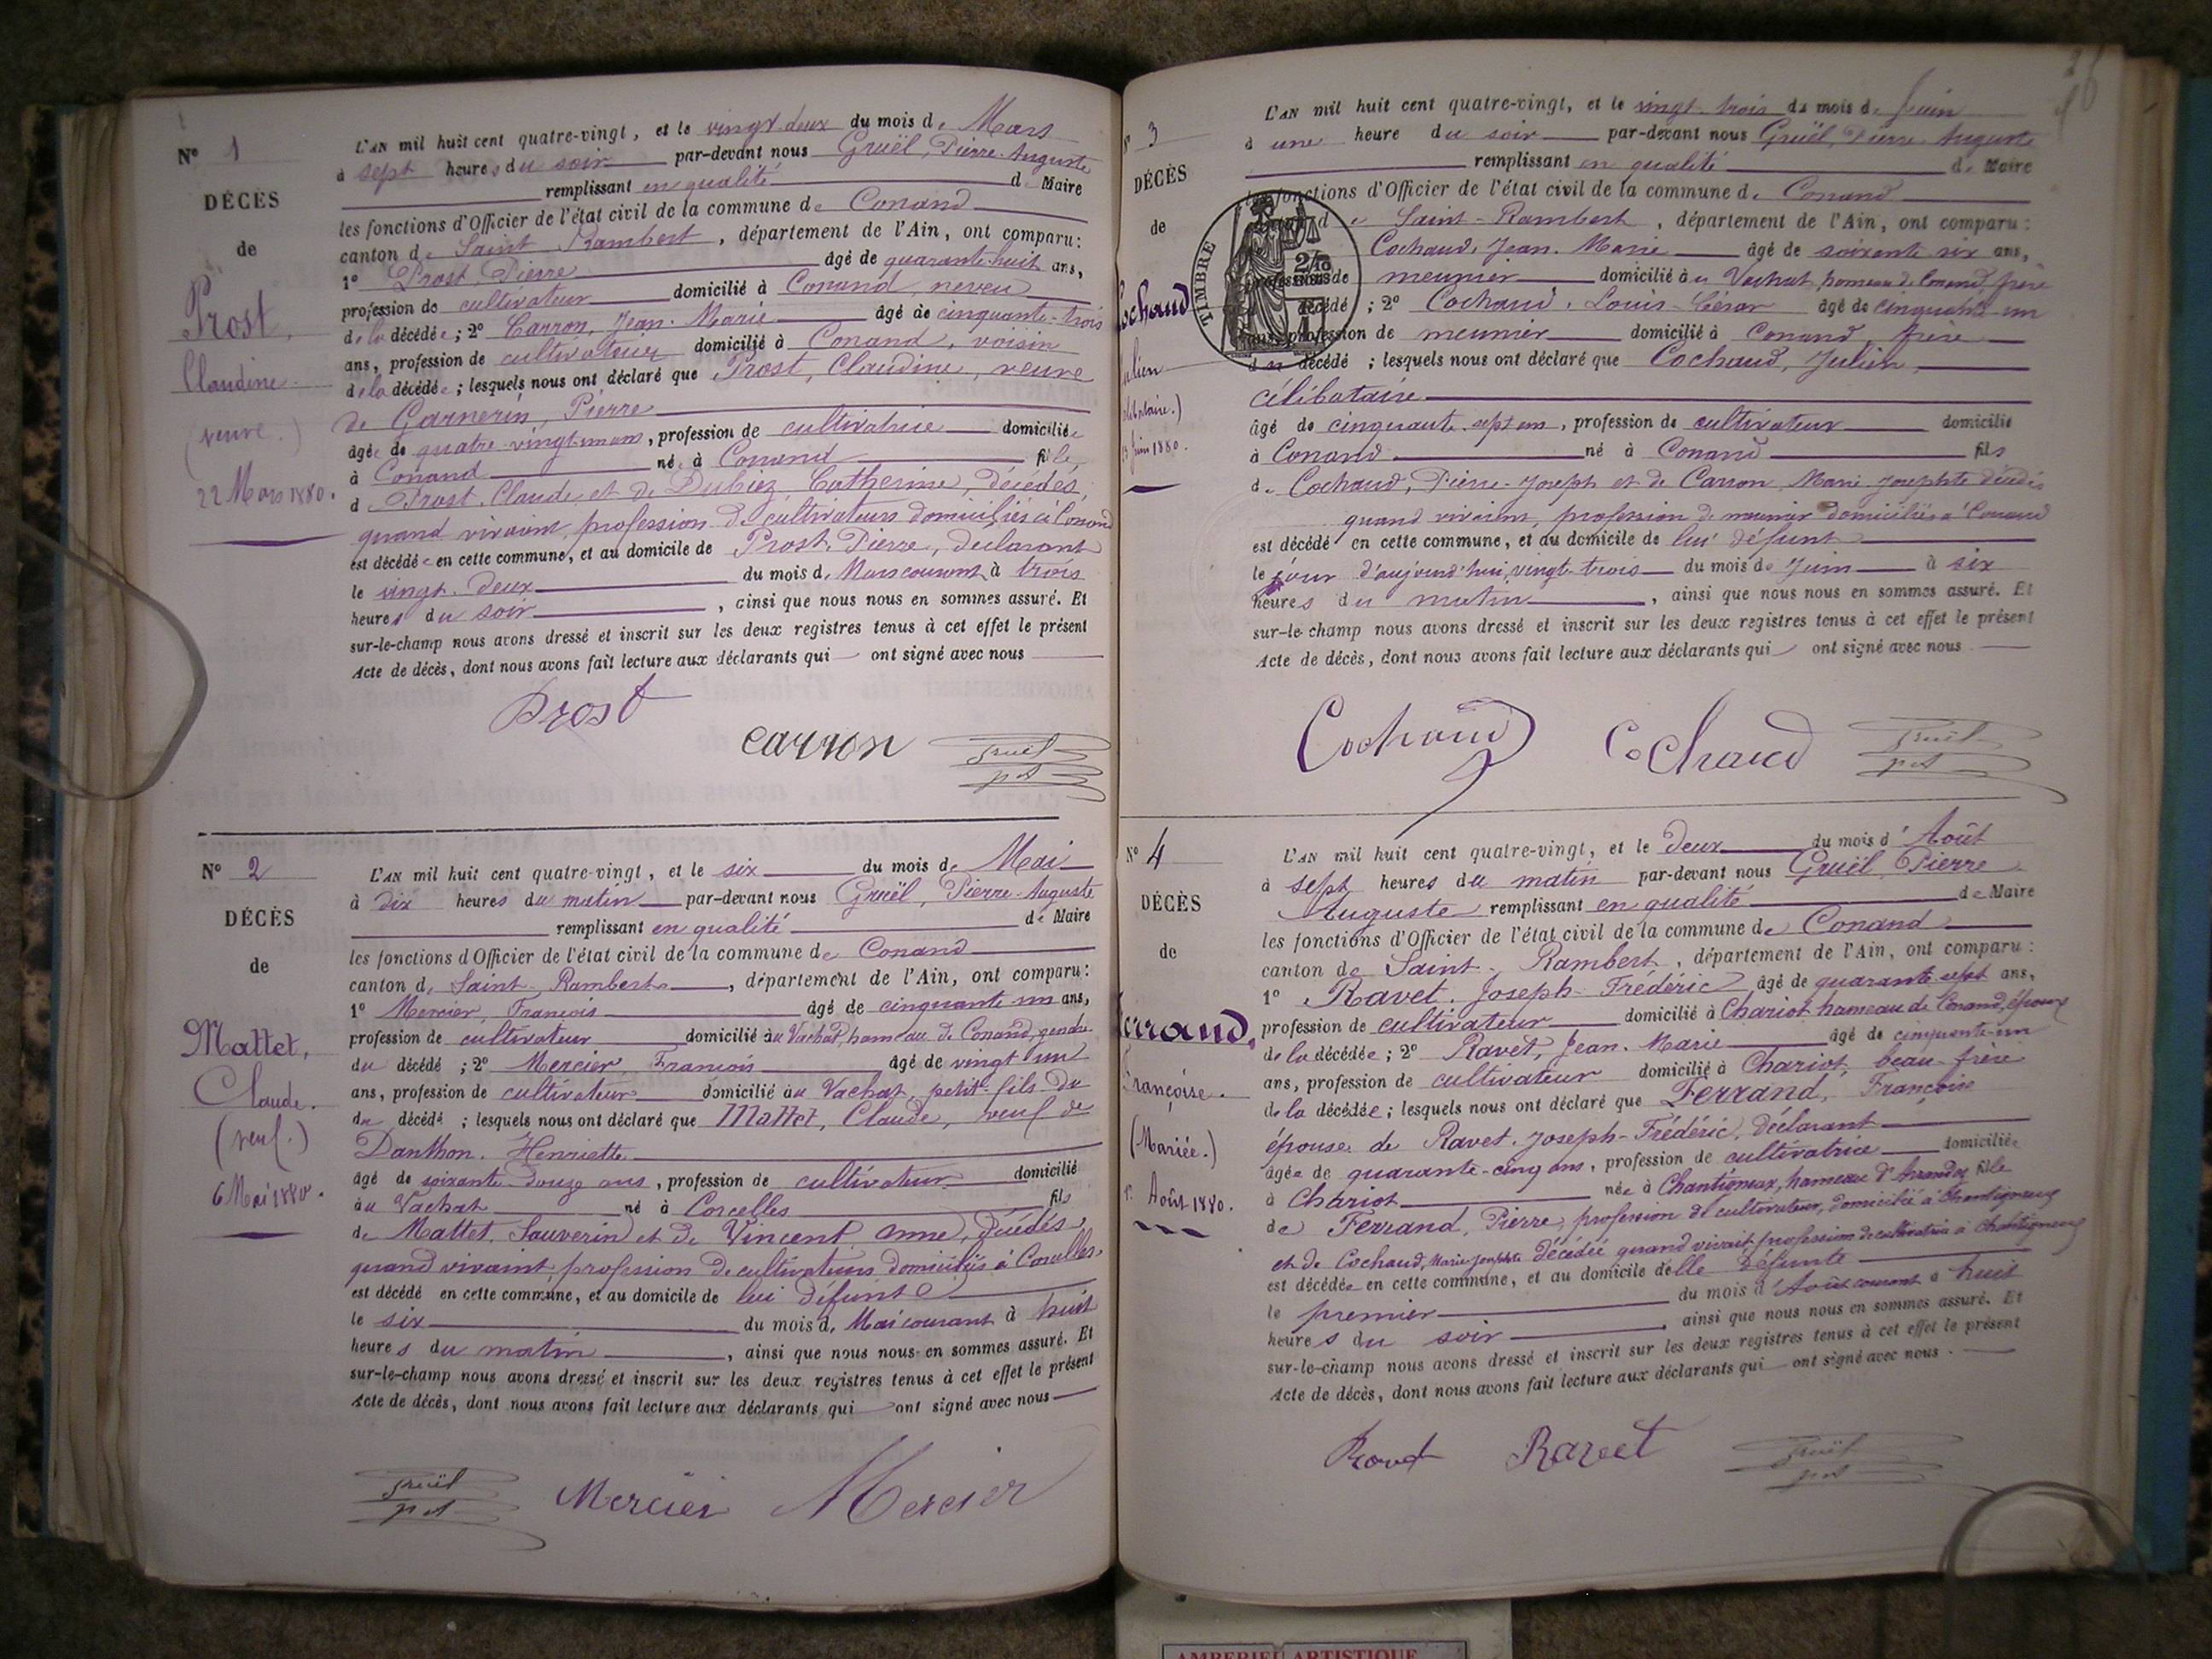 N° 1
DÉCÈS
de
Prost,
Claudine
(veuve.)
22 Mars 1880.
L'AN mil huit cent quatre-vingt, et le vingt deux du mois de Mars
à sept heures du soir par-devant nous Gruël, Pierre-Auguste
remplissant en qualité de Maire
les fonctions d'Officier de l'état civil de la commune de Conand
canton de Saint Rambert, département de l'Ain, ont comparu:
1° Prost, Pierre âgé de quarante-huit ans,
profession de cultivateur domicilié à Conand, neveu
de la décédée; 2° Carron, Jean-Marie âgé de cinquante-trois
ans, profession de cultivateur domicilié à Conand, voisin
de la décédée; lesquels nous ont déclaré que Prost, Claudine, veuve
de Garnerin, Pierre
âgée de quatre-vingt-un ans, profession de cultivatrice domiciliée
à Conand née à Conand fille
de Prost, Claude et de Dubiez Catherine, décédés,
quand vivaient, profession de cultivateurs domiciliés à Conand
est décédée en cette commune, et au domicile de Prost, Pierre, déclarant
le vingt-deux du mois de Mars courant à trois
heures du soir, ainsi que nous nous en sommes assuré. Et
sur-le-champ nous avons dressé et inscrit sur les deux registres tenus à cet effet le présent
Acte de décès, dont nous avons fait lecture aux déclarants qui ont signé avec nous
Prost
Carron Gruël
N° 2
DÉCÈS
de
Mattet,
Claude.
(veuf.)
6 Mai 1880.
L'AN mil huit cent quatre-vingt, et le six du mois de Mai
à dix heures du matin par-devant nous Gruël, Pierre-Auguste
remplissant en qualité de Maire
les fonctions d'Officier de l'état civil de la commune de Conand
canton de Saint-Rambert, département de l'Ain, ont comparu:
1° Mercier, François âgé de cinquante un ans,
profession de cultivateur domicilié au Vachat, hameau de Conand, gendre
du décédé; 2° Mercier, François âgé de vingt un
ans, profession de cultivateur domicilié au Vachat, petit-fils du
du décédé; lesquels nous ont déclaré que Mattet, Claude, veuf de
Danthon, Henriette
âgé de soixante-douze ans, profession de cultivateur domicilié
au Vachat né à Corcelles fils
de Mattet, Sauverin et de Vincent Anne, décédés,
quand vivaient, profession de cultivateurs domiciliés à Corcelles,
est décédé en cette commune, et au domicile de lui défunt
le six du mois de Mai courant à huit
heures du matin, ainsi que nous nous en sommes assuré. Et
sur-le-champ nous avons dressé et inscrit sur les deux registres tenus à cet effet le présent
Acte de décès, dont nous avons fait lecture aux déclarants qui ont signé avec nous
Gruël Mercier Mercier
3
DÉCÈS
de
Cochaud
Julien
1880.
TIMBRE
L'AN mil huit cent quatre-vingt, et le vingt-trois du mois de Juin
à une heure du soir par-devant nous Gruël, Pierre-Auguste
remplissant en qualité de Maire
les fonctions d'Officier de l'état civil de la commune de Conand
canton de Saint-Rambert, département de l'Ain, ont comparu:
Cochaud, Jean-Marie âgé de soixante six ans,
profession de meunier domicilié au Vachat hameau de Conand, frère
décédé; 2° Cochaud, Louis-César âgé de cinquante-un
ans, profession de meunier domicilié à Conand, frère
du décédé; lesquels nous ont déclaré que Cochaud, Julien,
célibataire
âgé de cinquante-sept ans, profession de cultivateur domicilié
à Conand né à Conand fils
de Cochaud, Pierre-Joseph et de Carron, Marie-Josephte décédés
quand vivaient, profession de meunier domiciliés à Conand
est décédé en cette commune, et au domicile de lui défunt
le jour d'aujourd'hui, vingt-trois du mois de Juin à six
heures du matin, ainsi que nous nous en sommes assuré. Et
sur-le-champ nous avons dressé et inscrit sur les deux registres tenus à cet effet le présent
Acte de décès, dont nous avons fait lecture aux déclarants qui ont signé avec nous
Cochaud Cochaud Gruël
N° 4
DÉCÈS
de
Ferrand,
Françoise.
(Mariée.)
1er Août 1880.
L'AN mil huit cent quatre-vingt, et le deux du mois d'Août
à sept heures du matin par-devant nous Gruël, Pierre
Auguste remplissant en qualité de Maire
les fonctions d'Officier de l'état civil de la commune de Conand
canton de Saint-Rambert, département de l'Ain, ont comparu:
1° Ravet, Joseph-Frédéric âgé de quarante-sept ans,
profession de cultivateur domicilié à Chariot hameau de Conand, époux
de la décédée; 2° Ravet, Jean-Marie âgé de cinquante-un
ans, profession de cultivateur domicilié à Chariot, beau-frère
de la décédée; lesquels nous ont déclaré que Ferrand, Françoise
épouse de Ravet, Joseph-Frédéric, déclarant
âgée de quarante-cinq ans, profession de cultivatrice domiciliée
à Chariot née à Chantigneux, hameau d'Arandas fille
de Ferrand, Pierre, profession de cultivateur, domicilié à Chantigneux
et de Cochaud, Marie-Josephte décédée quand vivait, profession de cultivatrice à Chantigneux
est décédée en cette commune, et au domicile d'elle défunte
le premier du mois d'Août courant à huit
heures du soir, ainsi que nous nous en sommes assuré. Et
sur-le-champ nous avons dressé et inscrit sur les deux registres tenus à cet effet le présent
Acte de décès, dont nous avons fait lecture aux déclarants qui ont signé avec nous.
Ravet Ravet Gruël
AMBERIEU ARTISTIQUE